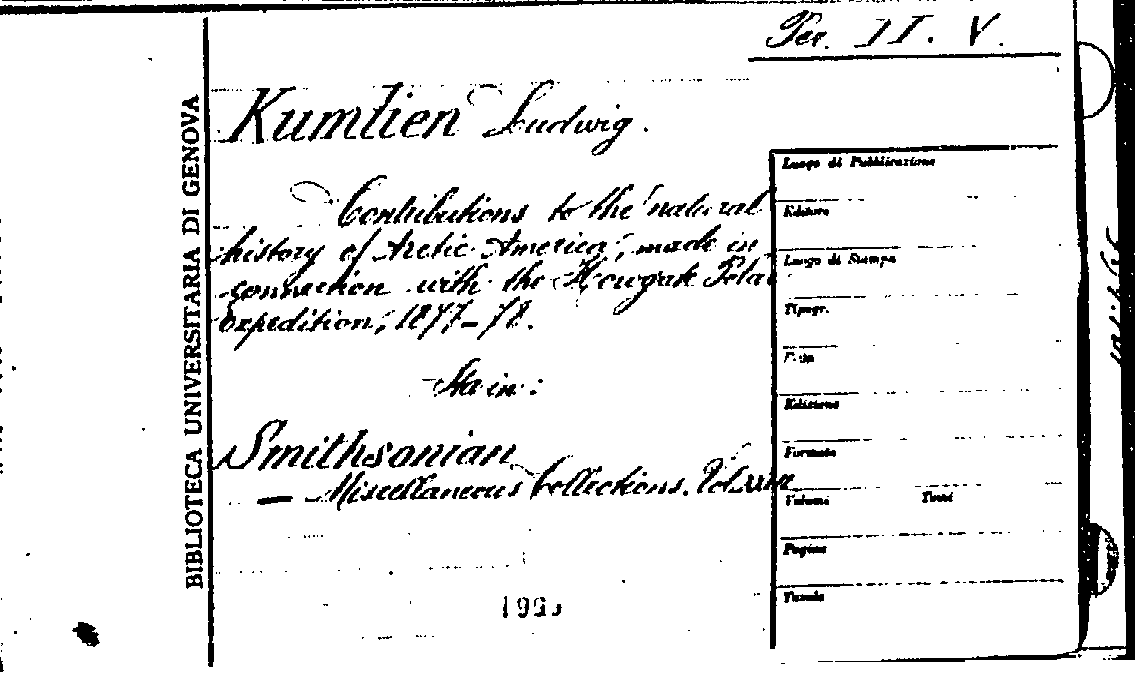 Per. II. V.
BIBLIOTECA UNIVERSITARIA DI GENOVA
Kumlien Ludwig.
Contributions to the natural
history of Arctic America, made in
connection with the Howgate Polar
Expedition, 1877-78.
Sta in:
Smithsonian
— Miscellaneous Collections. Vol.
Luogo di Pubblicazione
Editore
Luogo di Stampa
Tipogr.
Edizione
Formato
Volumi Tomi
Pagine
Tavole